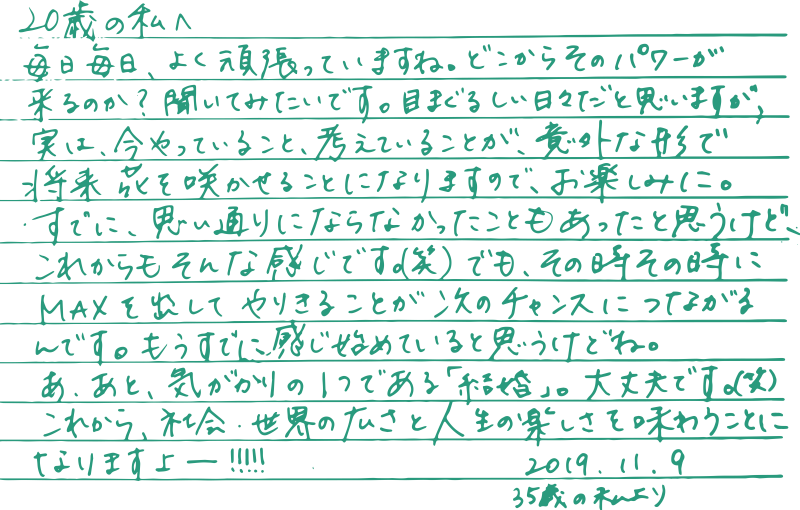 20歳の私へ
毎日毎日、よく頑張っていますね。どこからそのパワーが
来るのか?聞いてみたいです。目まぐるしい日々だと思いますが、
実は、今やっていること、考えていることが、意外な形で
将来花を咲かせることになりますので、お楽しみに。
すでに、思い通りにならなかったこともあったと思うけど、
これからもそんな感じです。(笑)でも、その時その時に
MAXを出してやりきることが次のチャンスにつながる
んです。もうすでに感じ始めていると思うけどね。
あ、あと、気がかりの1つである「結婚」。大丈夫です。(笑)
これから、社会・世界の広さと人生の楽しさを味わうことに
なりますよー!!!!!
2019.11.9
35歳の私より